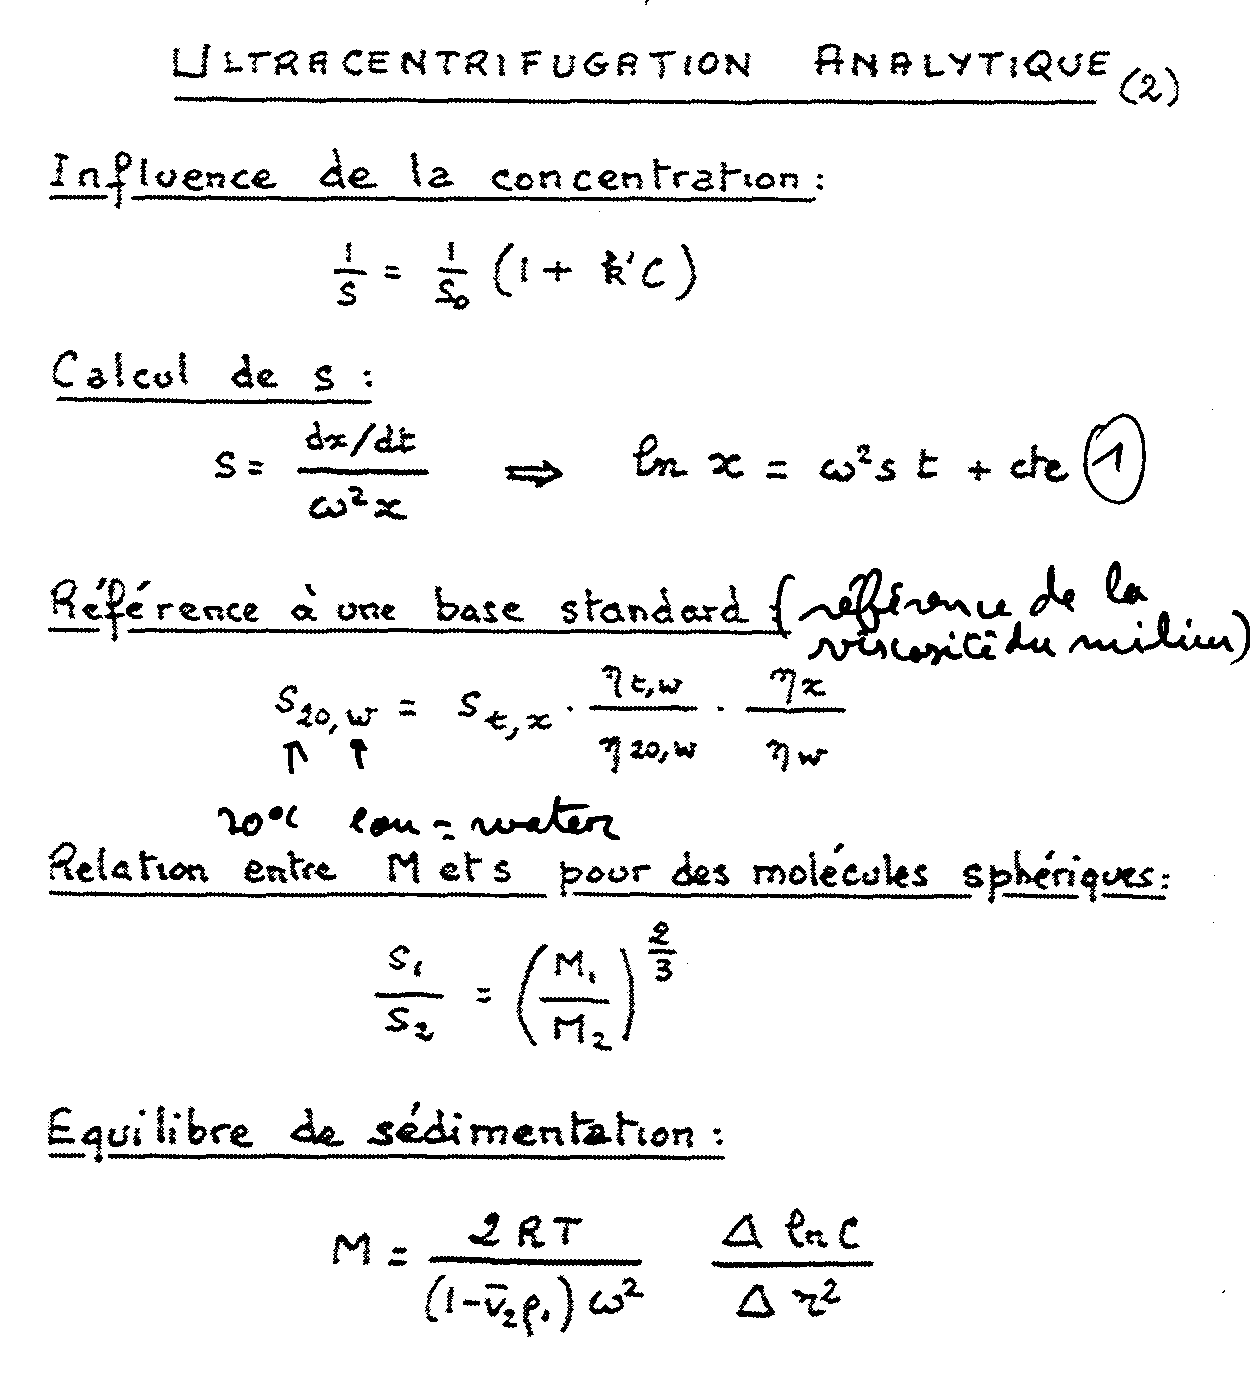 ULTRACENTRIFUGATION ANALYTIQUE (2)
Influence de la concentration :
1/s = 1/s₀ (1 + k'C)
Calcul de s :
s = (dx/dt)/(ω²x) ⇒ ln x = ω²s t + cte ①
Référence à une base standard : (référence de la
viscosité du milieu)
s₂₀,w = s_t,x · η_t,w/η₂₀,w · η_x/η_w
↑ ↑
20°C eau = water
Relation entre M et s pour des molécules sphériques :
s₁/s₂ = (M₁/M₂)^(2/3)
Equilibre de sédimentation :
M = 2RT/((1-v̄₂ρ₁)ω²) Δ ln C/Δ r²